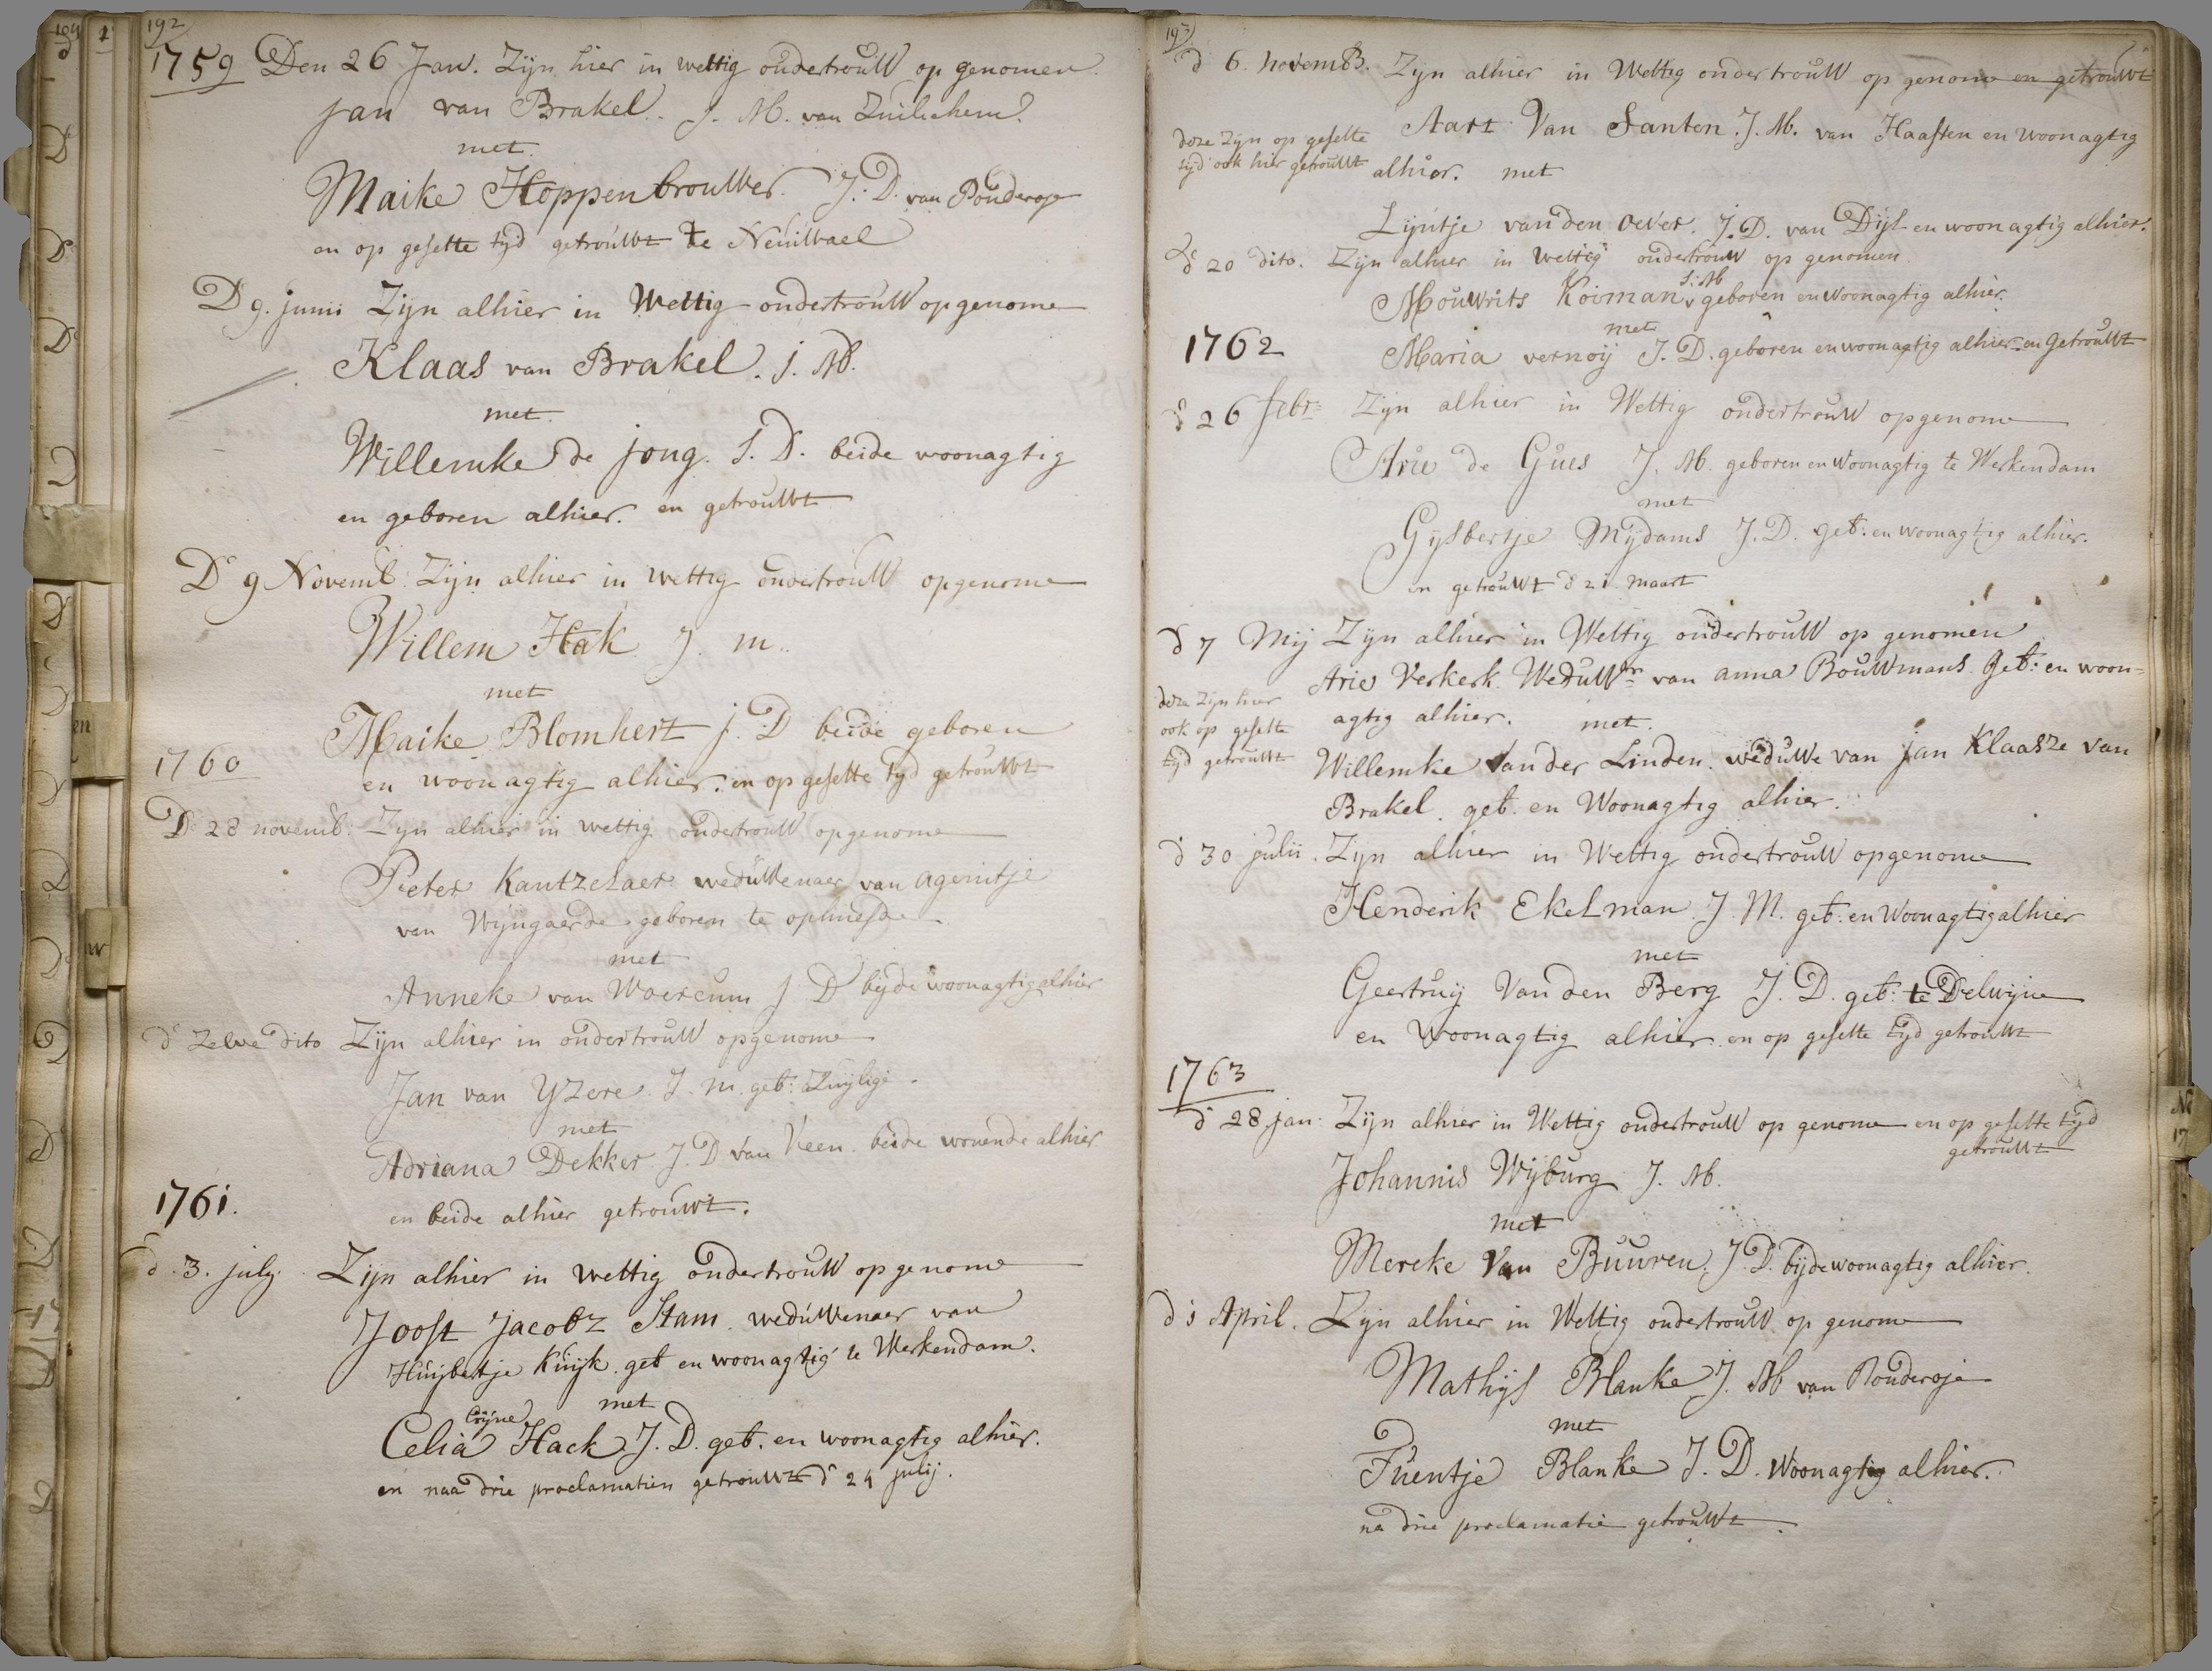 192
1759 Den 26 Jan. Zijn hier in wettig ondertrouW op genomen
jan van Brakel. J. M. van Zuilichem.
met
Maike HoppenbrouWer. J. D. van Pouderoje
en op gesette tijd getrouWt te NeuiWael
D 9. junii Zijn alhier in Wettig ondertrouW opgenome
Klaas van Brakel. j. M.
met.
Willemke de jong. J. D. beide woonagtig
en geboren alhier. en getrouWt
D 9 Novemb: Zijn alhier in wettig ondertrouW opgenome
Willem Hak J. m.
met
Maike Blomhert j. D beide geboren
1760
en woonagtig alhier. en op gesette tijd getrouWt
D 28 novemb: Zijn alhier in wettig ondertrouW opgenome
Pieter Kantzelaer weduWenaer van agenitje
van Wijngaerde geboren te ophuesde
met
Anneke van Woercum J D bijde woonagtig alhier
d' Zelve dito Zijn alhier in ondertrouW opgenome
Jan van YZere. J. m. geb: Zuylige.
met
Adriana Dekker. J. D van Veen. beide wonende alhier
1761.
en beide alhier getrouwt.
d. 3. july. Zijn alhier in wettig ondertrouW opgenome
Joost Jacobz Stam. weduWenaer van
Huijbertje Kuijk. geb en woonagtig te Werkendam.
met
Crijne
Celia Hack J. D. geb. en woonagtig alhier.
en naa drie proclamatien getrouWt d 24 julij.
193
d 6. novemB. Zijn alhier in Wettig ondertrouW op genome en getrouWt
Aart Van Santen. J. M. van Haaften en woonagtig
deze Zijn op gesette
tijd ook hier getrouWt
alhier. met
Lijntje van den oever. J. D. van Dijl en woonagtig alhier.
d 20 dito. Zijn alhier in wettig ondertrouw op genomen.
J: M
Mouwrits Koiman geboren en woonagtig alhier.
met
1762
Maria vernoij J. D. geboren en woonagtig alhier en GetrouWt
d 26 febr: Zijn alhier in Wettig ondertrouW opgenome
Arie de Gues J. M. geboren en woonagtig te Werkendam
met
Gijsbertje Mijdams J. D. geb: en woonagtig alhier.
en getrouWt d 21 maart
d 7 Mij Zijn alhier in Wettig ondertrouW op genomen
Arie Verkerk. WeduWr van anna BouWmans. Geb: en woon=
deze Zijn hier
ook op gesette
tijd getrouWt
agtig alhier. met.
Willemke Van der Linden. weduWe van jan Klaasze van
Brakel. geb. en Woonagtig alhier.
d 30 julii. Zijn alhier in Wettig ondertrouW opgenome
Henderik Ekelman. J. M. geb: en Woonagtig alhier
met
Geertruij Van den Berg J. D. geb: te Delwijne
en Woonagtig alhier en op gesette tijd getrouWt
1763
d 28 jan: Zijn alhier in Wettig ondertrouW op genome en op gesette tijd
getrouWt
Johannis Wijburg J. M.
met
Mereke Van Buuren. J. D. bijde woonagtig alhier.
d 1 April. Zijn alhier in Wettig ondertrouW op genome
Mathijs Blanke J. M van Pouderoje
met
Fuentje Blanke J. D. Woonagtig alhier.
na drie proclamatie getrouWt.